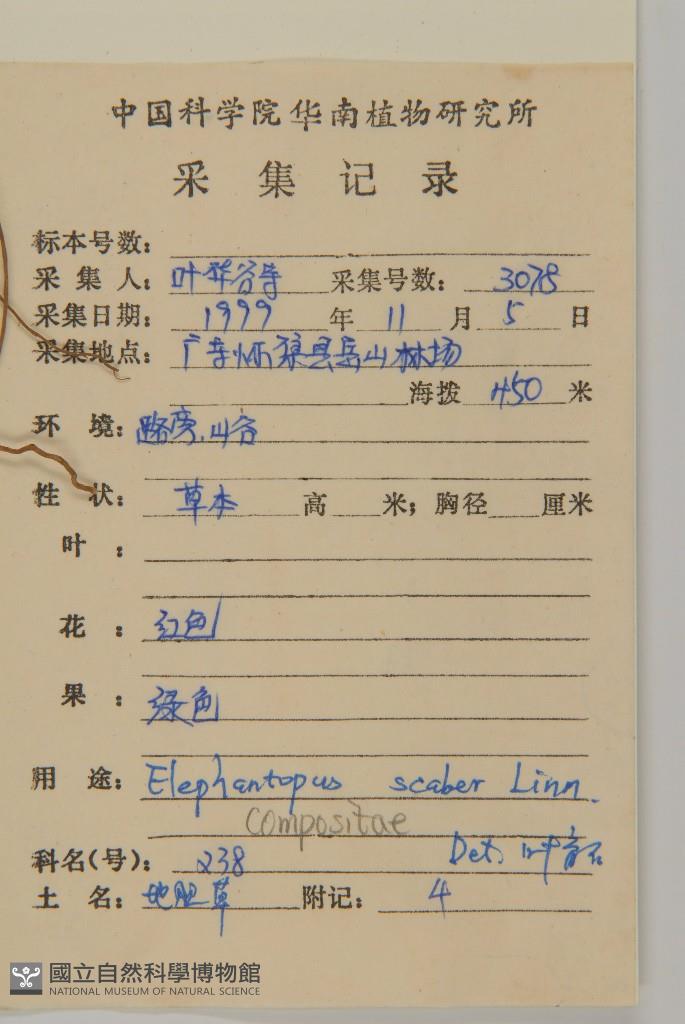 中国科学院华南植物研究所
采集记录
标本号数：
采集人：叶华谷等 采集号数：3078
采集日期：1999年11月5日
采集地点：广东怀集县岳山林场
海拨 450 米
环境：路旁.山谷
性状：草本 高 米；胸径 厘米
叶：
花：红色
果：绿色
用途：Elephantopus scaber Linn.
Compositae
科名(号)：238 Det. 叶育石
土名：地胆草 附记：4
國立自然科學博物館
NATIONAL MUSEUM OF NATURAL SCIENCE